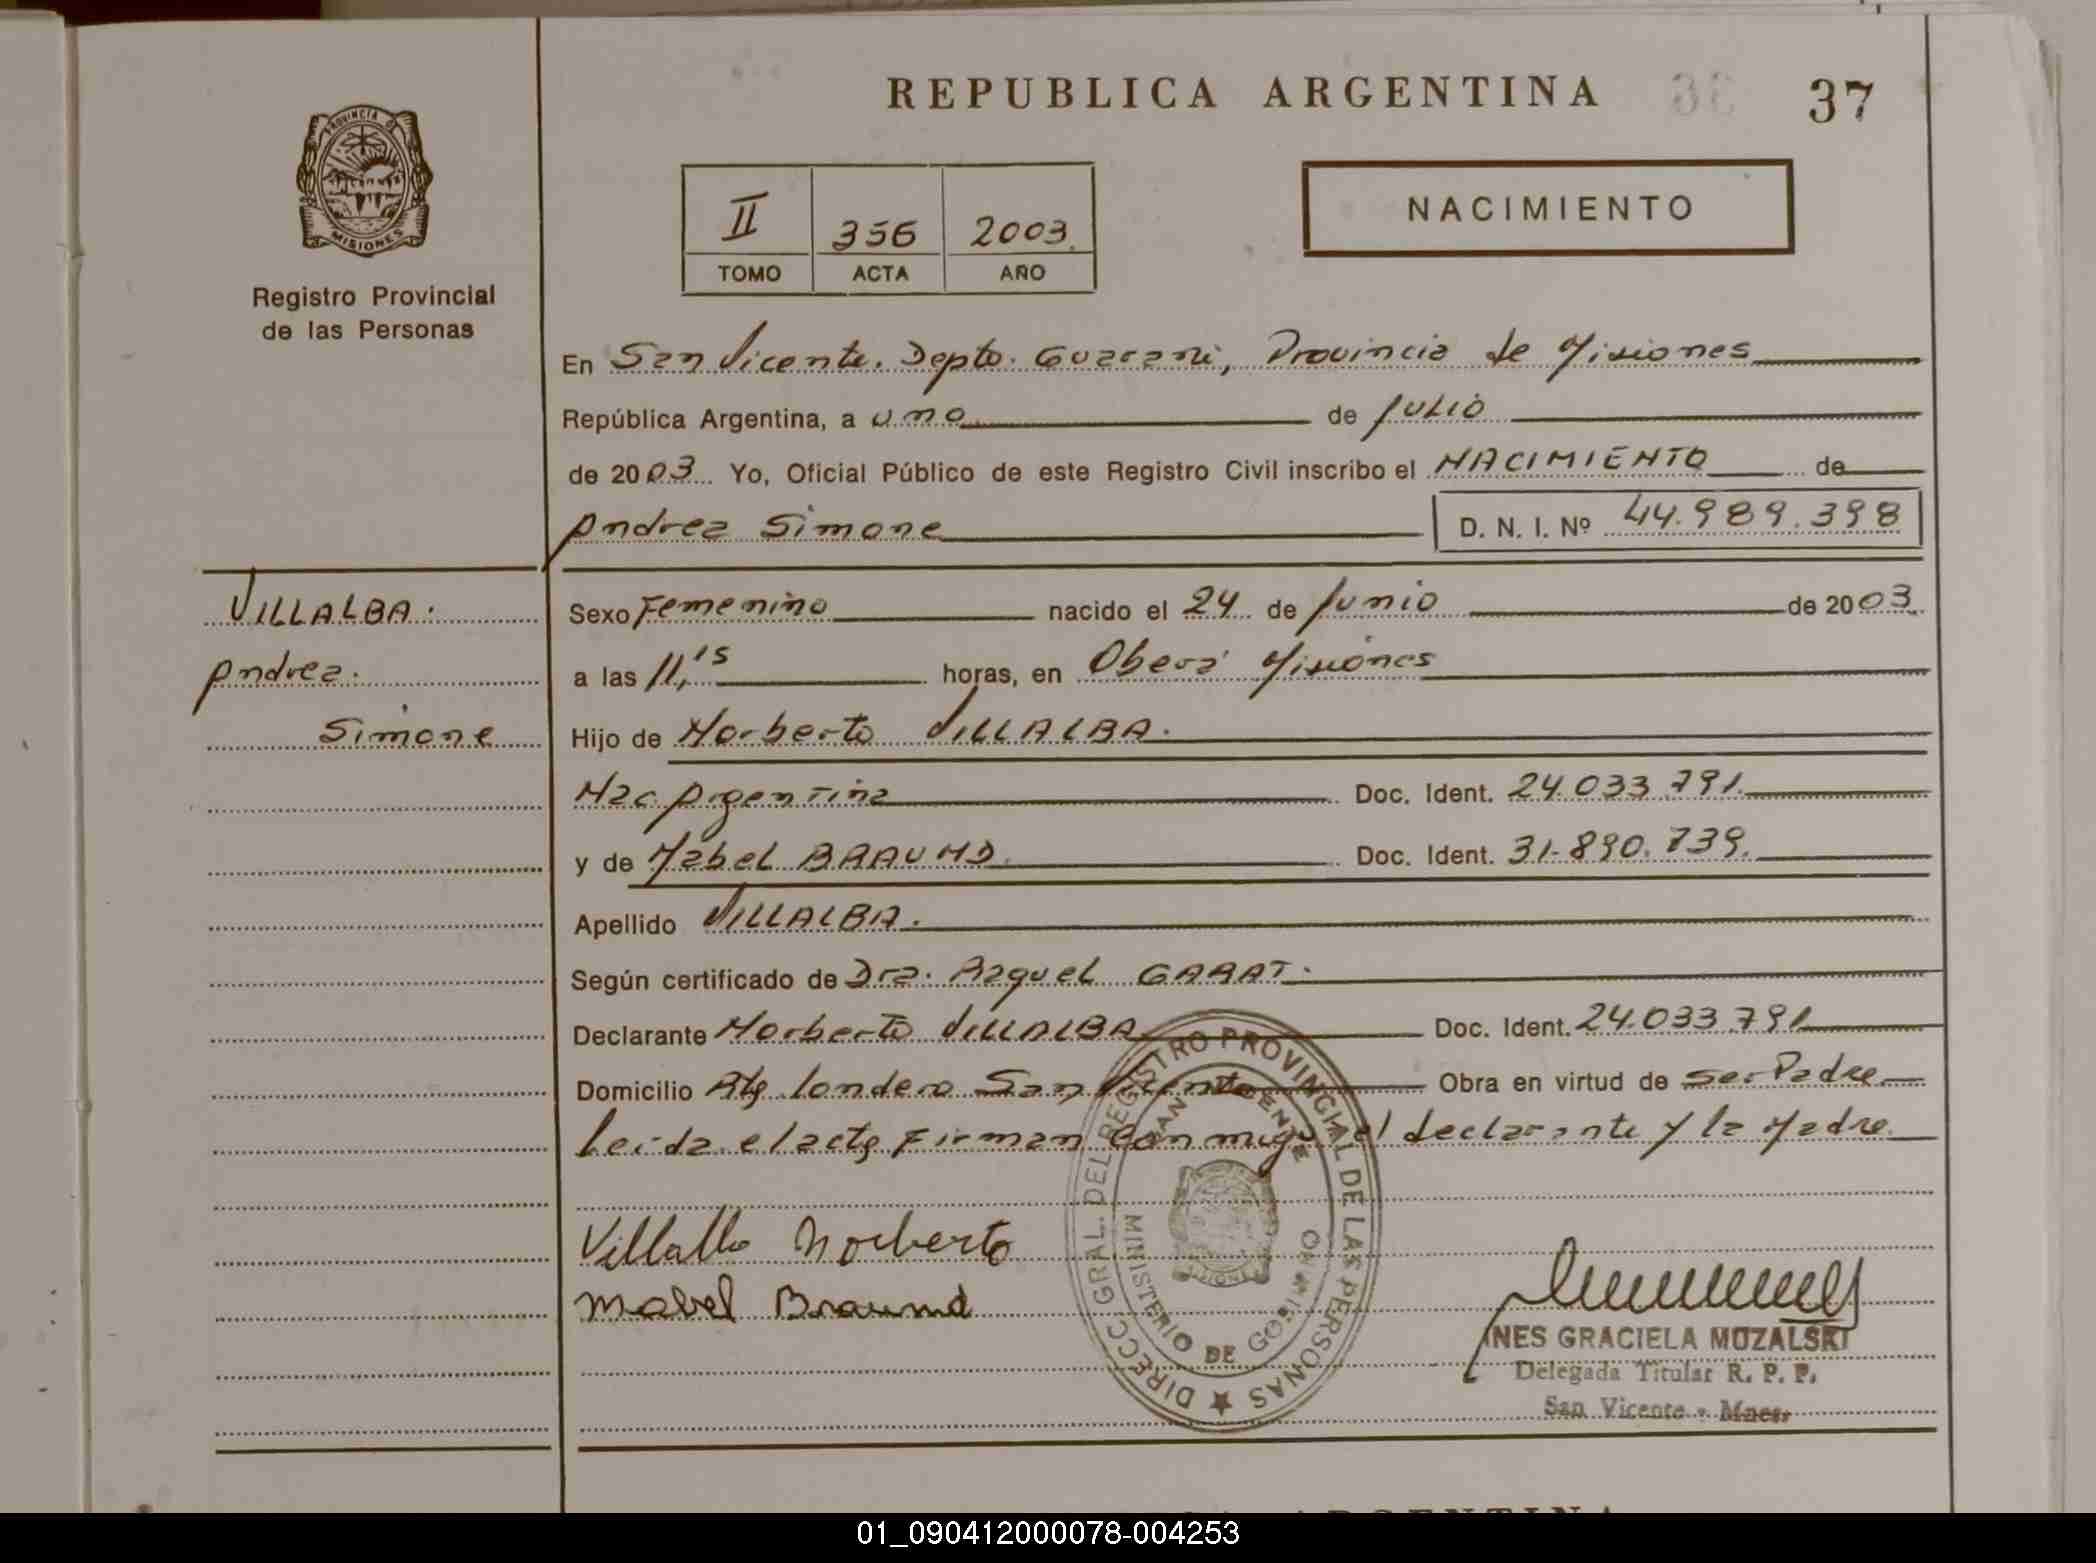 REPUBLICA ARGENTINA 36 37
PROVINCIA DE
MISIONES
Registro Provincial
de las Personas
II 356 2003
TOMO ACTA AÑO
NACIMIENTO
En San Vicente. Depto. Guarani, Provincia de Misiones
República Argentina, a uno de Julio
de 2003 Yo, Oficial Público de este Registro Civil inscribo el NACIMIENTO de
Andrea Simone D. N. I. Nº 44.989.398
VILLALBA.
Andrea.
Simone
Sexo Femenino nacido el 24 de Junio de 2003
a las 11,15 horas, en Oberá Misiones
Hijo de Norberto VILLALBA.
Nac. Argentina Doc. Ident. 24.033.791.
y de Mabel BRAUND. Doc. Ident. 31.890.739.
Apellido VILLALBA.
Según certificado de Dra. Raquel GARAT.
Declarante Norberto VILLALBA Doc. Ident. 24.033.791
Domicilio londero San Vicente Obra en virtud de ser Padre
Leida el acta Firman Conmigo el declarante y la Madre
Villalba Norberto
Mabel Braund
DIRECC. GRAL. DEL REGISTRO PROVINCIAL DE LAS PERSONAS
SAN VICENTE
MISIONES
MINISTERIO DE GOBIERNO
INES GRACIELA MUZALSKI
Delegada Titular R. P. P.
San Vicente - Mnes.
ARGENTINA
01_090412000078-004253